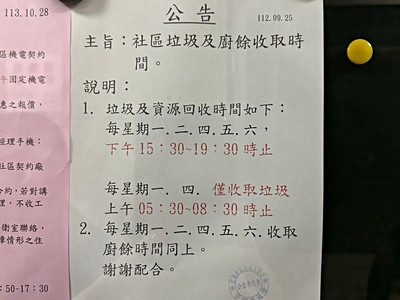 113.10.28
區機電契約
午固定機電
急之報價，
經理手機：
社區契約廠
合約，若對講
理，不收工
衛室聯絡，
障情形之住
:50~17:30
公告
112.09.25
主旨：社區垃圾及廚餘收取時
間。
說明：
1. 垃圾及資源回收時間如下：
每星期一.二.四.五.六，
下午15:30~19:30時止
每星期一.四.僅收取垃圾
上午05:30~08:30時止
2. 每星期一.二.四.五.六.收取
廚餘時間同上。
謝謝配合。